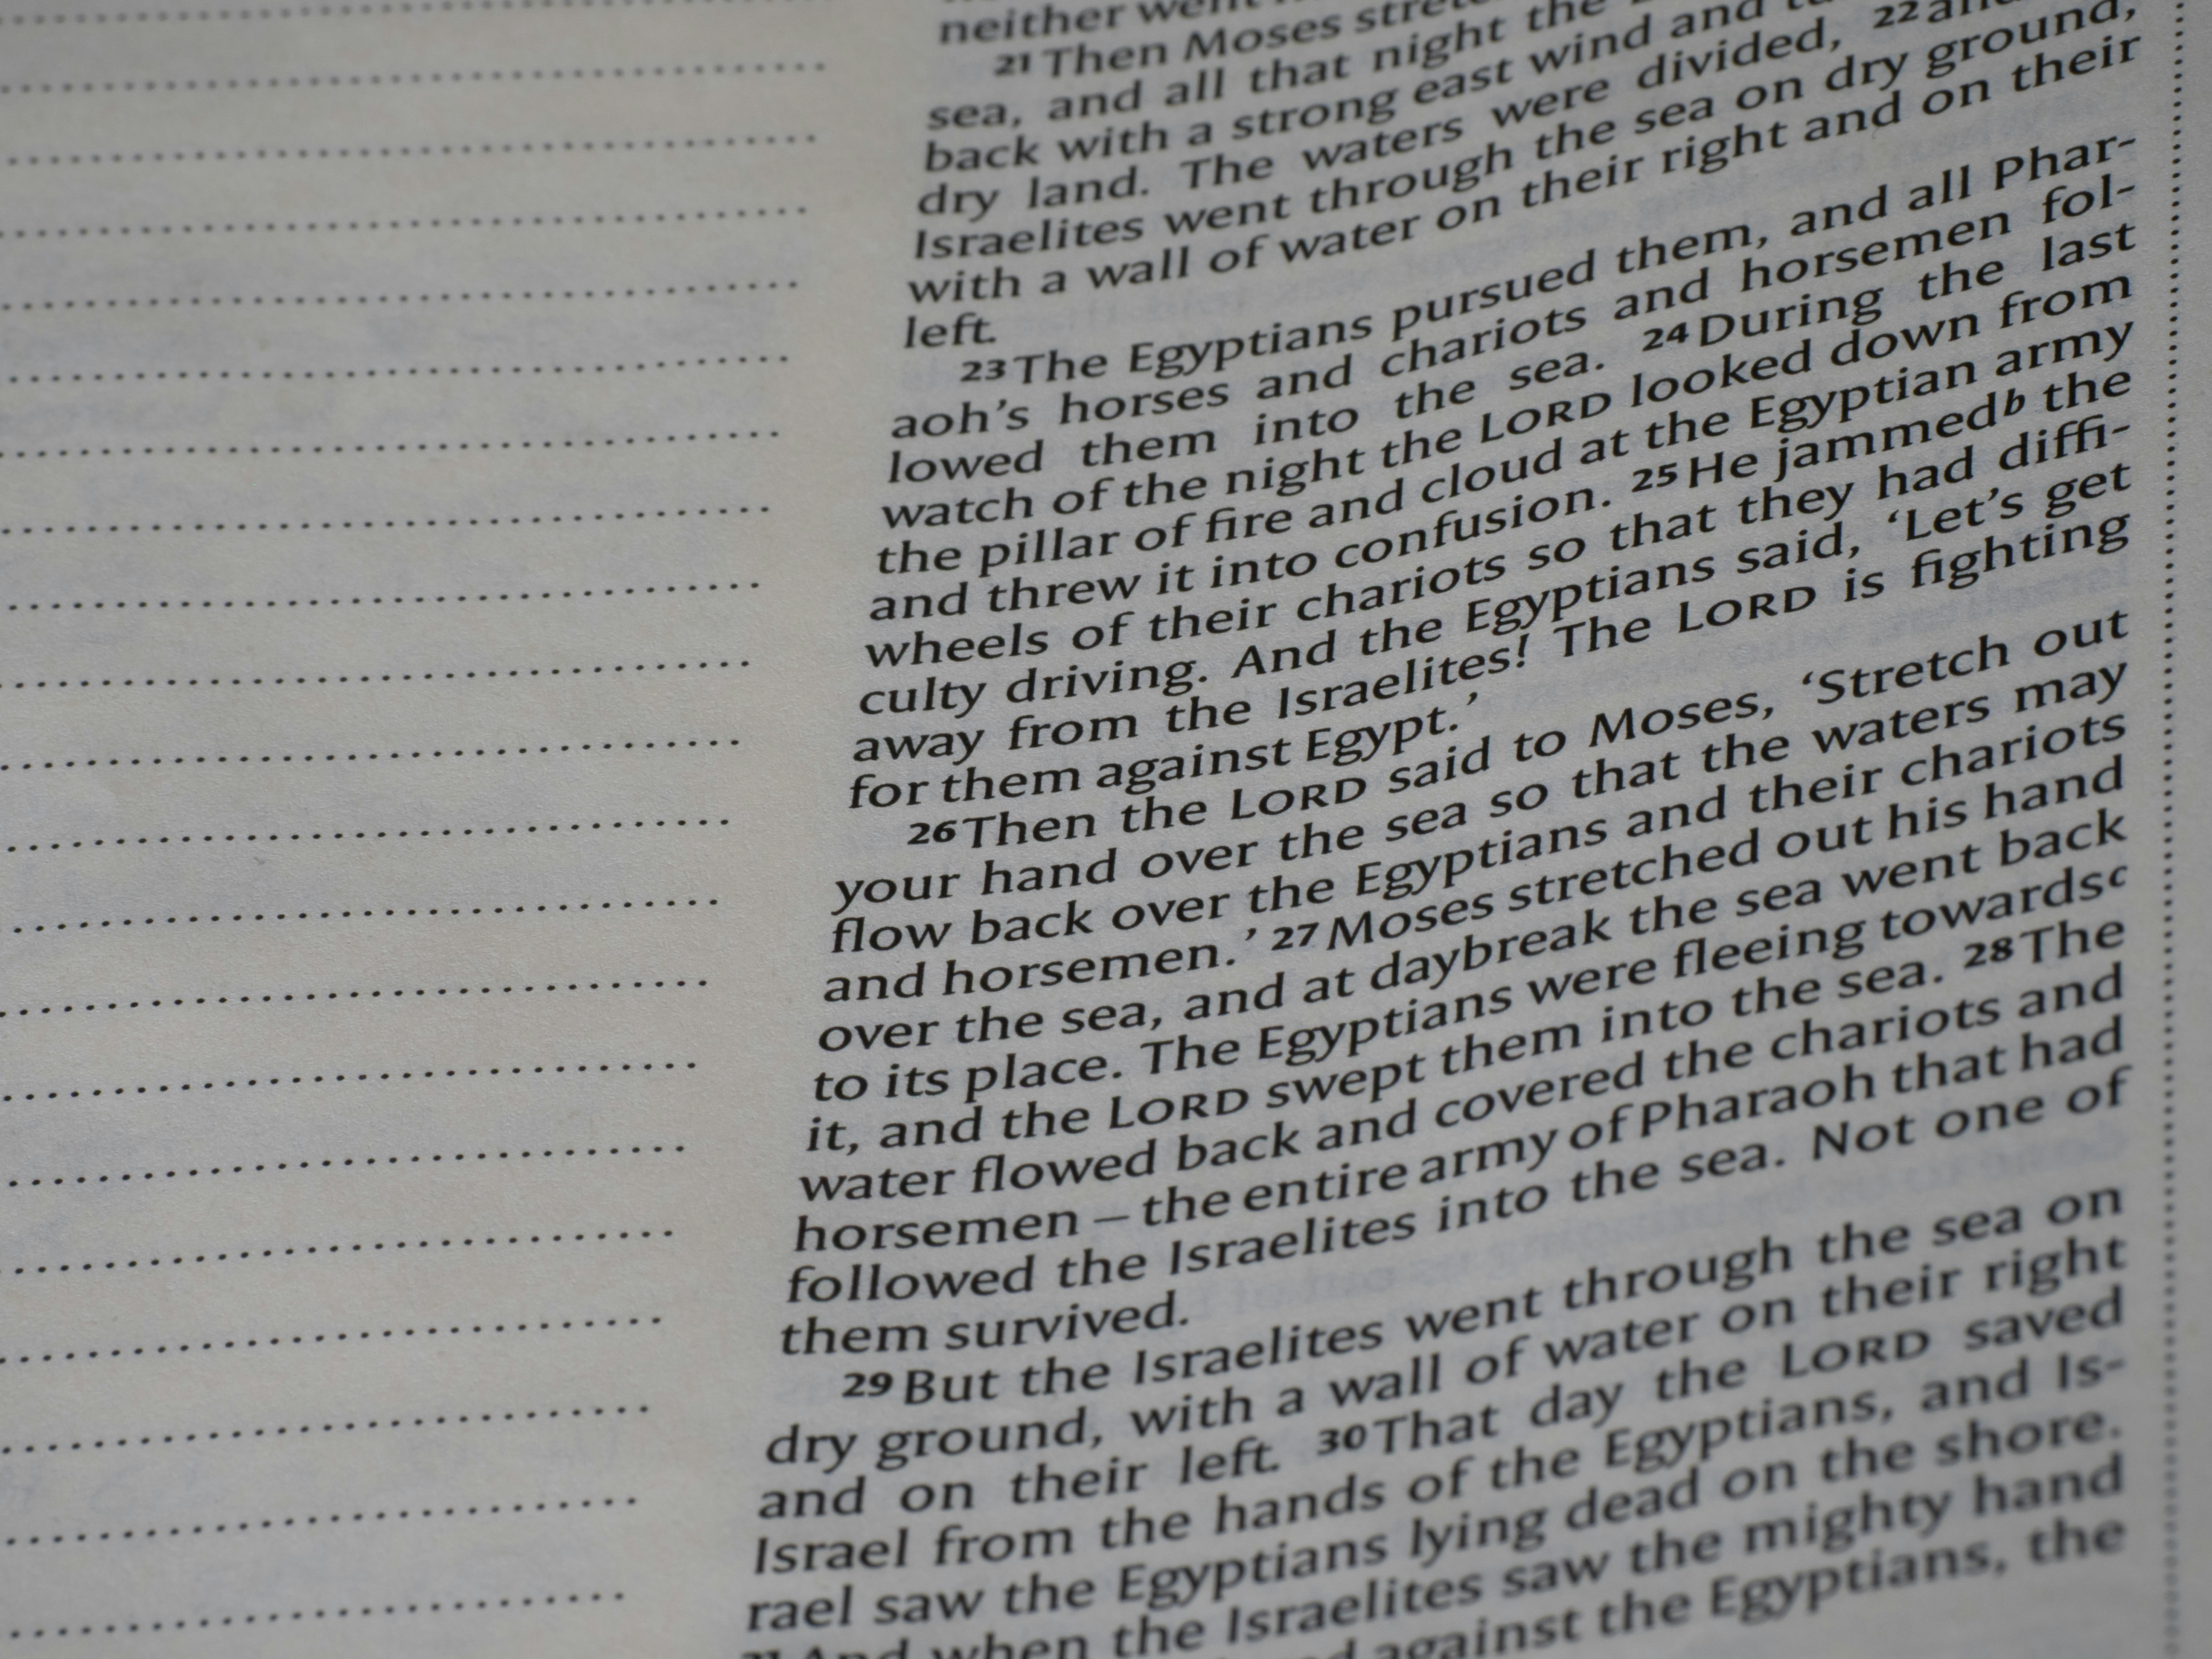 neither went
21 Then Moses
sea, and all that night the
back with a strong east wind and
dry land. The waters were divided, 22
Israelites went through the sea on dry ground,
with a wall of water on their right and on their
left.
23 The Egyptians pursued them, and all Phar-
aoh’s horses and chariots and horsemen fol-
lowed them into the sea. 24 During the last
watch of the night the LORD looked down from
the pillar of fire and cloud at the Egyptian army
and threw it into confusion. 25 He jammedb the
wheels of their chariots so that they had diffi-
culty driving. And the Egyptians said, ‘Let’s get
away from the Israelites! The LORD is fighting
for them against Egypt.’
26 Then the LORD said to Moses, ‘Stretch out
your hand over the sea so that the waters may
flow back over the Egyptians and their chariots
and horsemen.’ 27 Moses stretched out his hand
over the sea, and at daybreak the sea went back
to its place. The Egyptians were fleeing towardsc
it, and the LORD swept them into the sea. 28 The
water flowed back and covered the chariots and
horsemen – the entire army of Pharaoh that had
followed the Israelites into the sea. Not one of
them survived.
29 But the Israelites went through the sea on
dry ground, with a wall of water on their right
and on their left. 30 That day the LORD saved
Israel from the hands of the Egyptians, and Is-
rael saw the Egyptians lying dead on the shore.
31 And when the Israelites saw the mighty hand
against the Egyptians, the